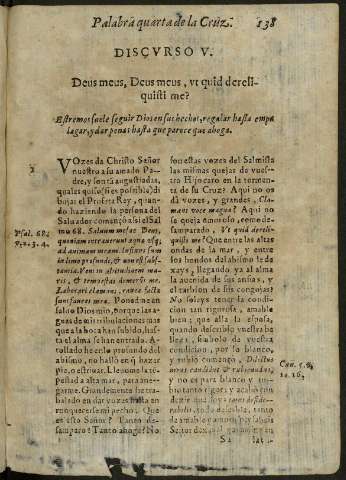 Palabra quarta de la Cruz.
138
DISCVRSO V.
Deus meus, Deus meus, vt quid dereli-
quisti me?
Estremos suele seguir Dios en sus hechos, regalar hasta empa
lagar, y dar penas hasta que parece que ahoga.
1
VOzes da Christo Señor
nuestro a su amado Pa-
dre, y son tā angustiadas,
quales quiso (si es possible) di
buxar el Profeta Rey, quan-
do haziendo la persona del
Saluador començò assi el Sal
mo 68. Saluum me fac Deus,
quoniam intrauerunt aquæ vsq;
ad animam meam. Infixus sum
in limo profundi, & non est sub-
stantia. Veni in altitudinem ma-
ris, & tempestas demersit me.
Laboraui clamans, raucæ factæ
sunt fauces meæ. Ponedme en
saluo Dios mio, porque las a-
guas de mis tribulaciones mas
que a la boca han subido, has-
ta el alma se han entrado. A-
rrollado he en lo profundo del
abismo, no hallo en q̄ hazer
pie, o estriuar. Lleuome la tē-
pestad a alta mar, para ane-
garme. Grandemente he tra-
bajado en dar vozes hasta en
ronquecerseme el pecho. Que
es esto Señor? Tanto de-
samparo? Tanto ahogo? No
Psal. 68.
v. 2. 3. 4.
son estas vozes del Salmista
las mismas quejas de vues-
tro Hijo caro en la tormen-
ta de su Cruz? Aqui no os
dà vozes, y grandes, Cla-
mans voce magna? Aqui no
se queja amoroso, como de-
samparado, Vt quid dereli-
quisti me? Que entre las altas
ondas de la mar, y entre
los hondos del abismo le de
xays, llegando ya al alma
la auenida de sus ansias, y
el raudal de sus congojas?
No soleys tener la condi-
cion tan rigurosa, amable
bien; que alla la esposa,
quando descriuio vuestra be
lleza, simbolo de vuestra
condicion, por lo blanco,
y rubio començo, Dilectus
meus candidus & rubicundus;
y no es para blanco y
Can. 5. n.
10. 16.
S 2